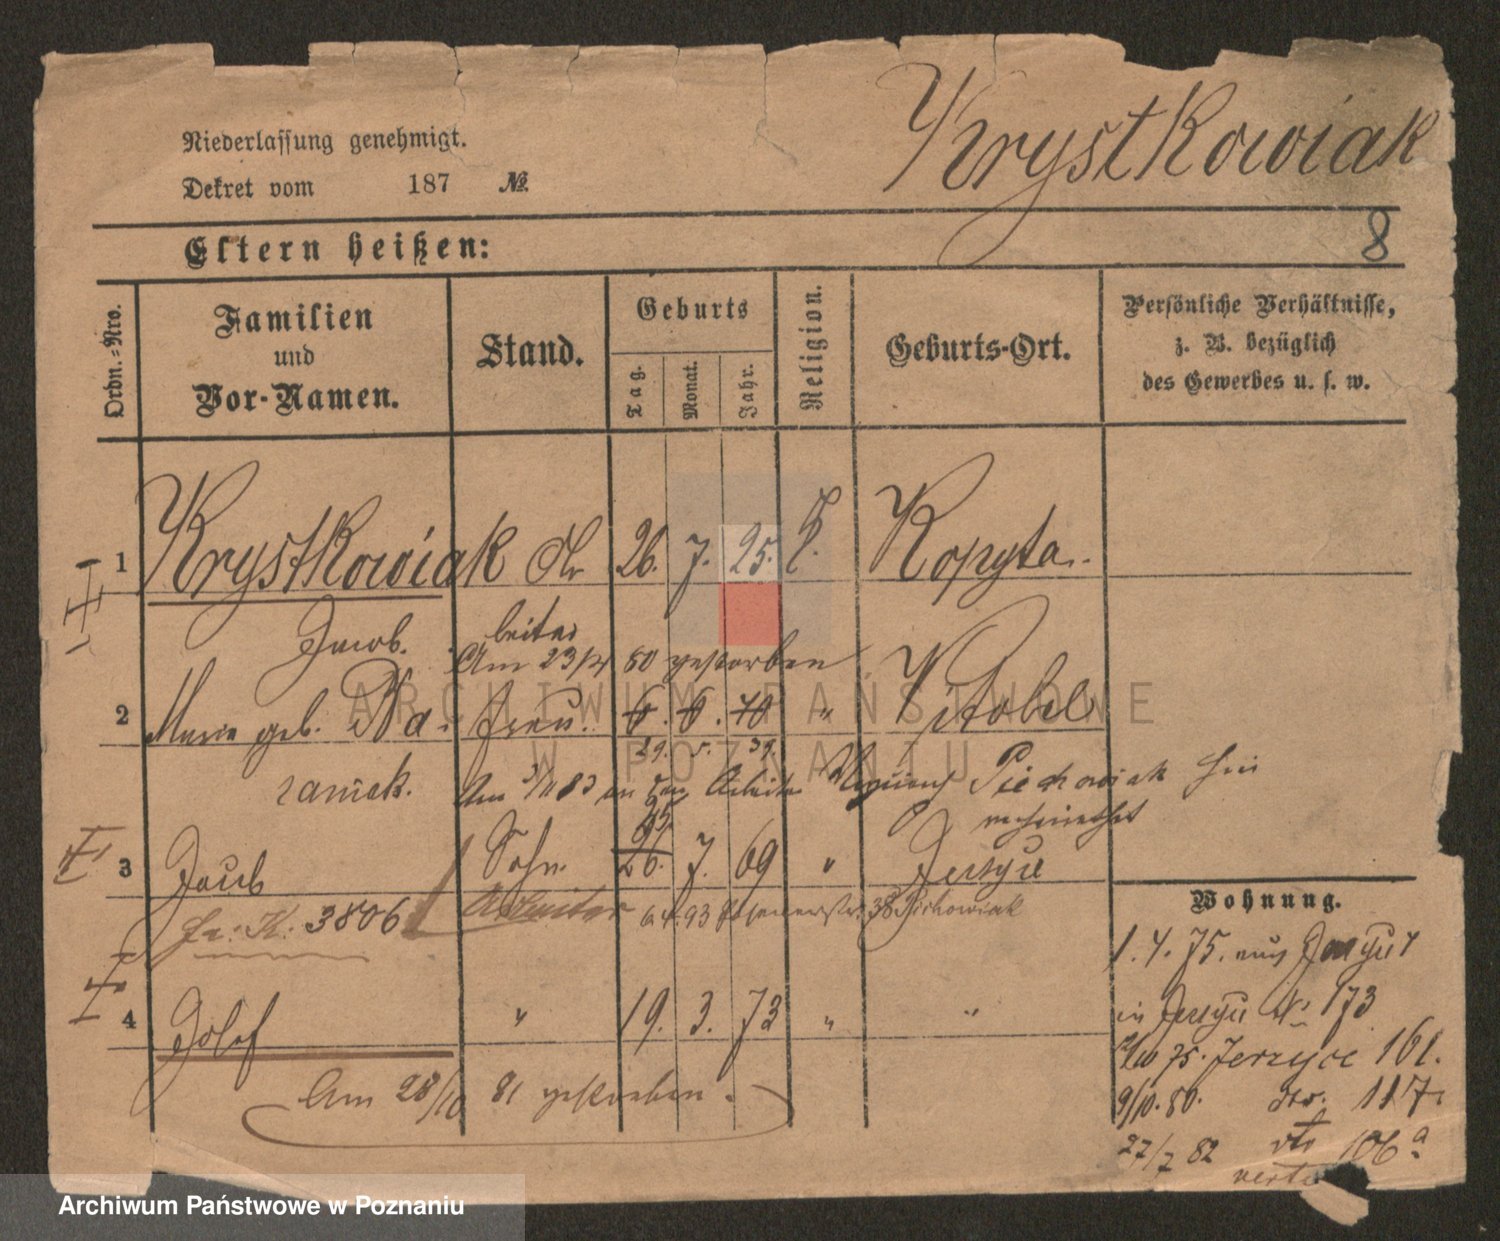 Krystkowiak
Niederlassung genehmigt.
Dekret vom 187 №.
8
Eltern heißen:
Ordn.-Nro.
Familien
und
Vor-Namen.
Stand.
Geburts
Tag.
Monat.
Jahr.
Religion.
Geburts-Ort.
Persönliche Verhältnisse,
z. B. bezüglich
des Gewerbes u. s. w.
1 Krystkowiak Ar 26. 7. 25. k. Kopyta.
Jacob. beiter
Am 23/4 80 gestorben
2 Marie geb. Ba- Frau. 6. 6. 40 " Witobel
29. 5. 39.
raniak. Am 3/11 83 an den Arbeiter Piechowiak hin
verheirathet
25.
3 Jacob Sohn 26. 7. 69 " Jersyce
fr. K. 3806 Arbeiter 6.4.93 38 Piechowiak
4 Josef " 19. 3. 73 " "
Am 28/10 81 gestorben.
Wohnung.
1. 4. 75. aus
in Jersyce № 173
75. Jerzyce 161.
9/10. 80. dto. 117.
27/7 82 dto 106a
ARCHIWUM PAŃSTWOWE
W POZNANIU
Archiwum Państwowe w Poznaniu